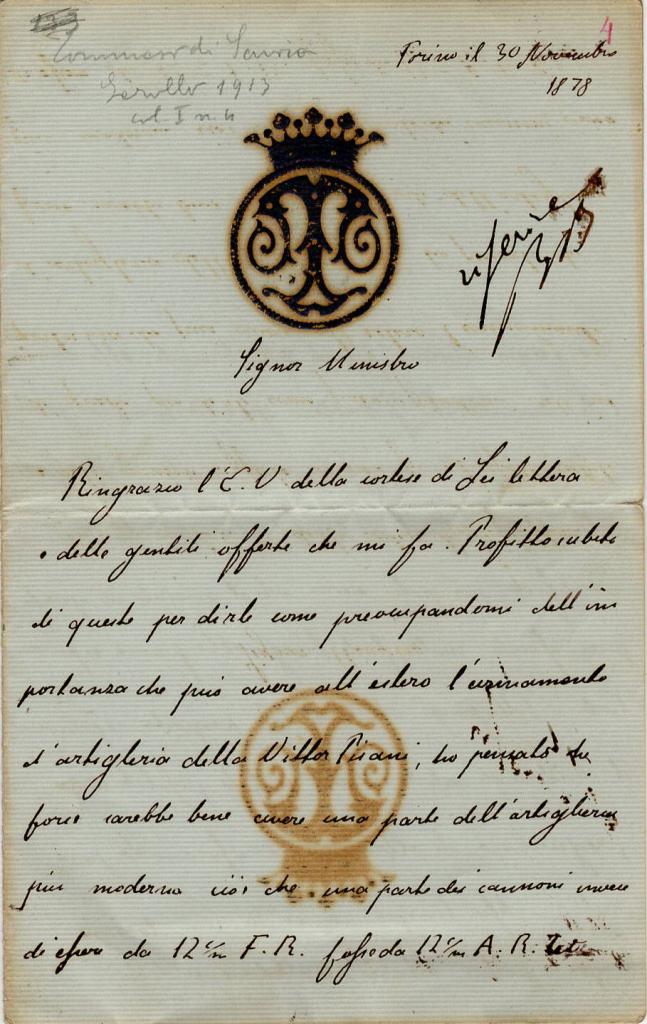 Tommaso di Savoia
1913
vol I n. 4
4
Torino il 30 Novembre
1878
Signor Ministro
Ringrazio l'E. V della cortese di Lei lettera
e delle gentili offerte che mi fa. Profitto subito
di queste per dirle come preoccupandomi dell'im
portanza che può avere all'estero l'armamento
d'artiglieria della Vittor Pisani, ho pensato che
forse sarebbe bene avere una parte dell'artiglieria
più moderna cioè che una parte dei cannoni invece
di essere da 12 c/m F. R. fosse da 12 c/m A. R.